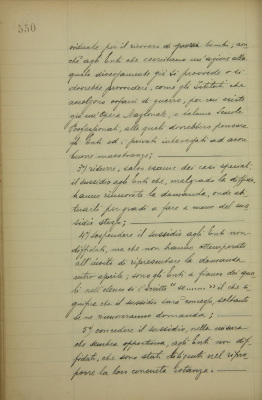 550
viduale per il ricovero di poveri bambini; non
chè agli Enti che esercitano un'azione alla
quale diversamente già si provvede o si
dovrebbe provvedere, come gli istituti che
accolgono orfani di guerra, per cui esiste
già un'Opera Nazionale, e talune Scuole
Professionali, alle quali dovrebbero pensare
gli Enti ed i privati interessati ad avere
buone maestranze;
3°) ridurre, salvo esame dei casi speciali,
il sussidio agli Enti che, malgrado la diffida,
hanno rinnovata la domanda, onde abi-
tuarli per gradi a fare a meno del sus-
sidio stesso;
4°) sospendere il sussidio agli Enti non
diffidati, ma che non hanno ottemperato
all'invito di ripresentare la domanda
entro aprile; sono gli Enti a fianco dei qua-
li nell'elenco si è scritto "se mai" il che si-
gnifica che il sussidio sarà erogato soltanto
se ne rinnoveranno domanda;
5°) concedere il sussidio, nella misura
che sembra opportuna, agli Enti non dif-
fidati, che sono stati diligenti nel ripro-
porre la loro concreta istanza.